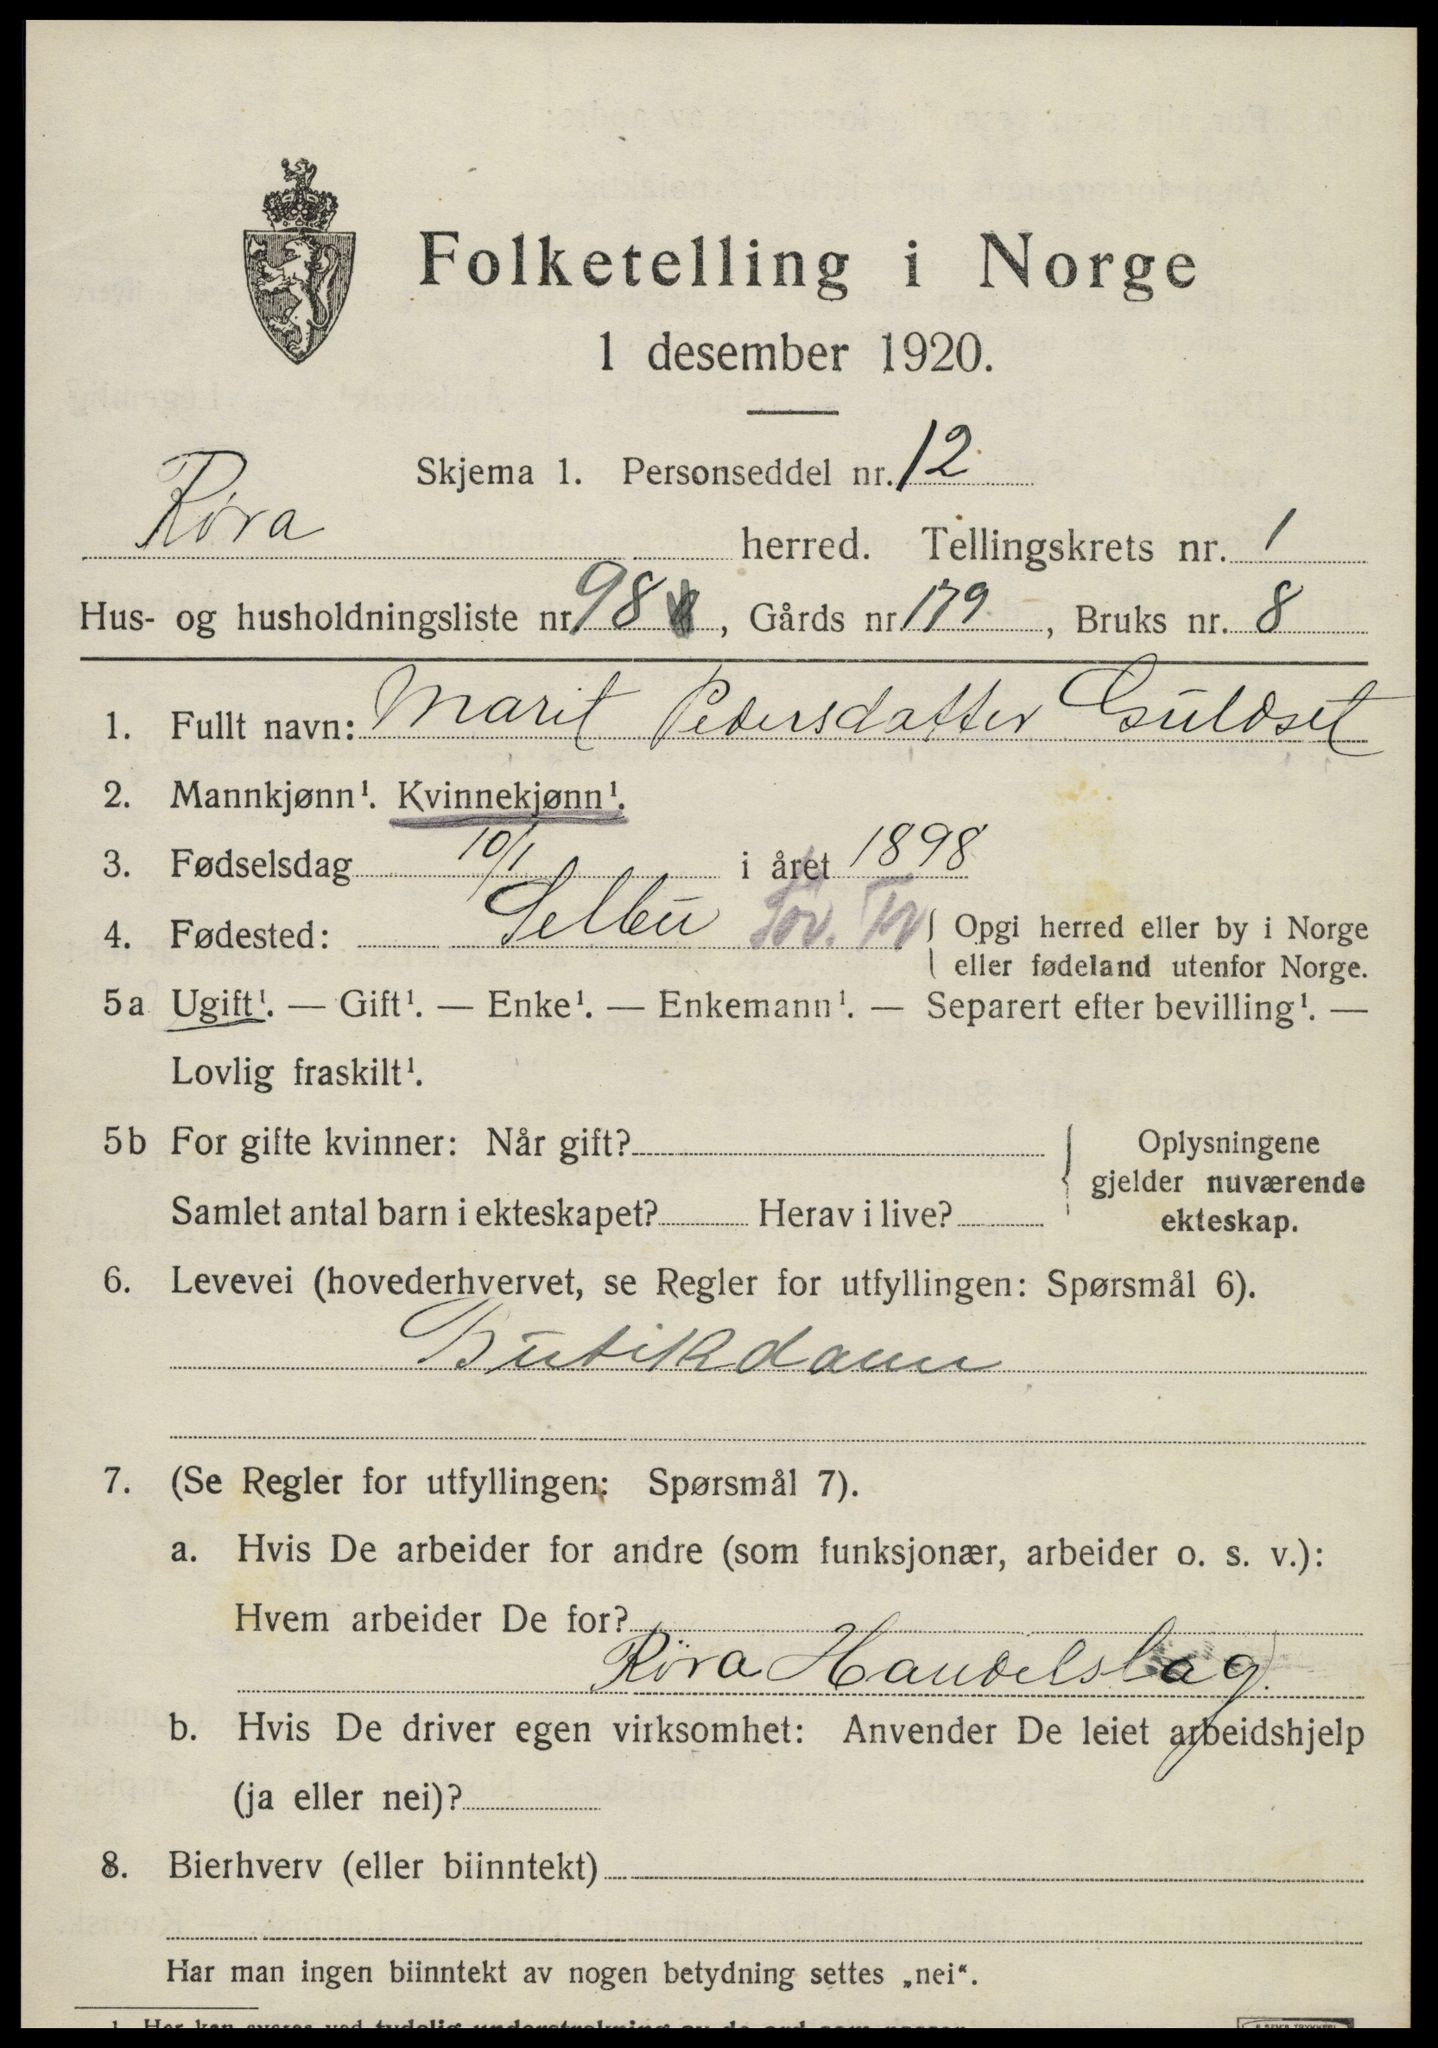 Folketelling i Norge
1 desember 1920.
Skjema 1. Personseddel nr. 12
Røra herred. Tellingskrets nr. 1
Hus- og husholdningsliste nr. 98, Gårds nr. 179, Bruks nr. 8
1. Fullt navn: Marit Pedersdatter Guldset
2. Mannkjønn¹. Kvinnekjønn¹.
3. Fødselsdag 10/1 i året 1898
4. Fødested: Selbu Sør. Tr { Opgi herred eller by i Norge
eller fødeland utenfor Norge.
5a Ugift¹. — Gift¹. — Enke¹. — Enkemann¹. — Separert efter bevilling¹. —
Lovlig fraskilt¹.
5b For gifte kvinner: Når gift? { Oplysningene
gjelder nuværende
Samlet antal barn i ekteskapet? Herav i live? ekteskap.
6. Levevei (hovederhvervet, se Regler for utfyllingen: Spørsmål 6).
Butikdame
7. (Se Regler for utfyllingen: Spørsmål 7).
a. Hvis De arbeider for andre (som funksjonær, arbeider o. s. v.):
Hvem arbeider De for?
Røra Handelslag.
b. Hvis De driver egen virksomhet: Anvender De leiet arbeidshjelp
(ja eller nei)?
8. Bierhverv (eller biinntekt)
Har man ingen biinntekt av nogen betydning settes „nei“.
1 Her kan svares ved tydelig understrekning av de ord som passer.